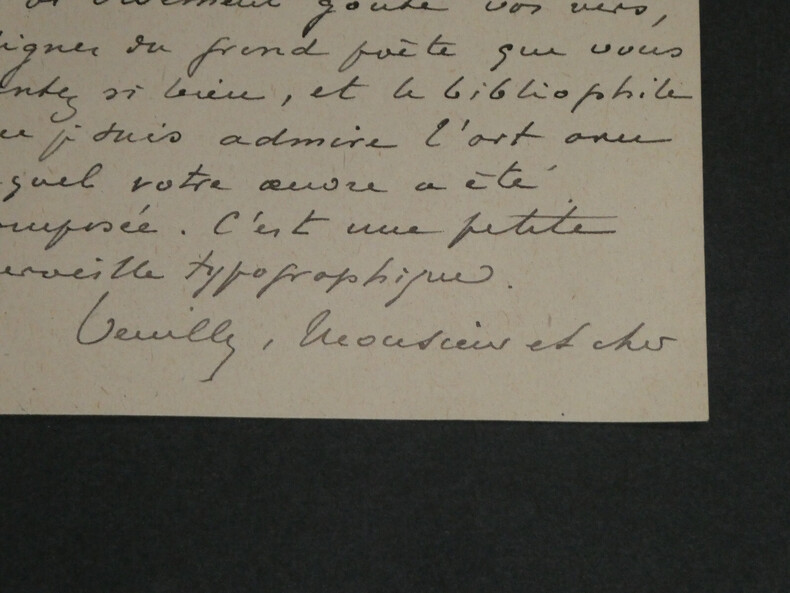 vivement goûté vos vers,
dignes du grand poête que vous
si bien, et le bibliophile
que je suis admire l'art avec
lequel votre œuvre a été
composée. C'est une petite
merveille typographique.
Veuillez, Monsieur et cher